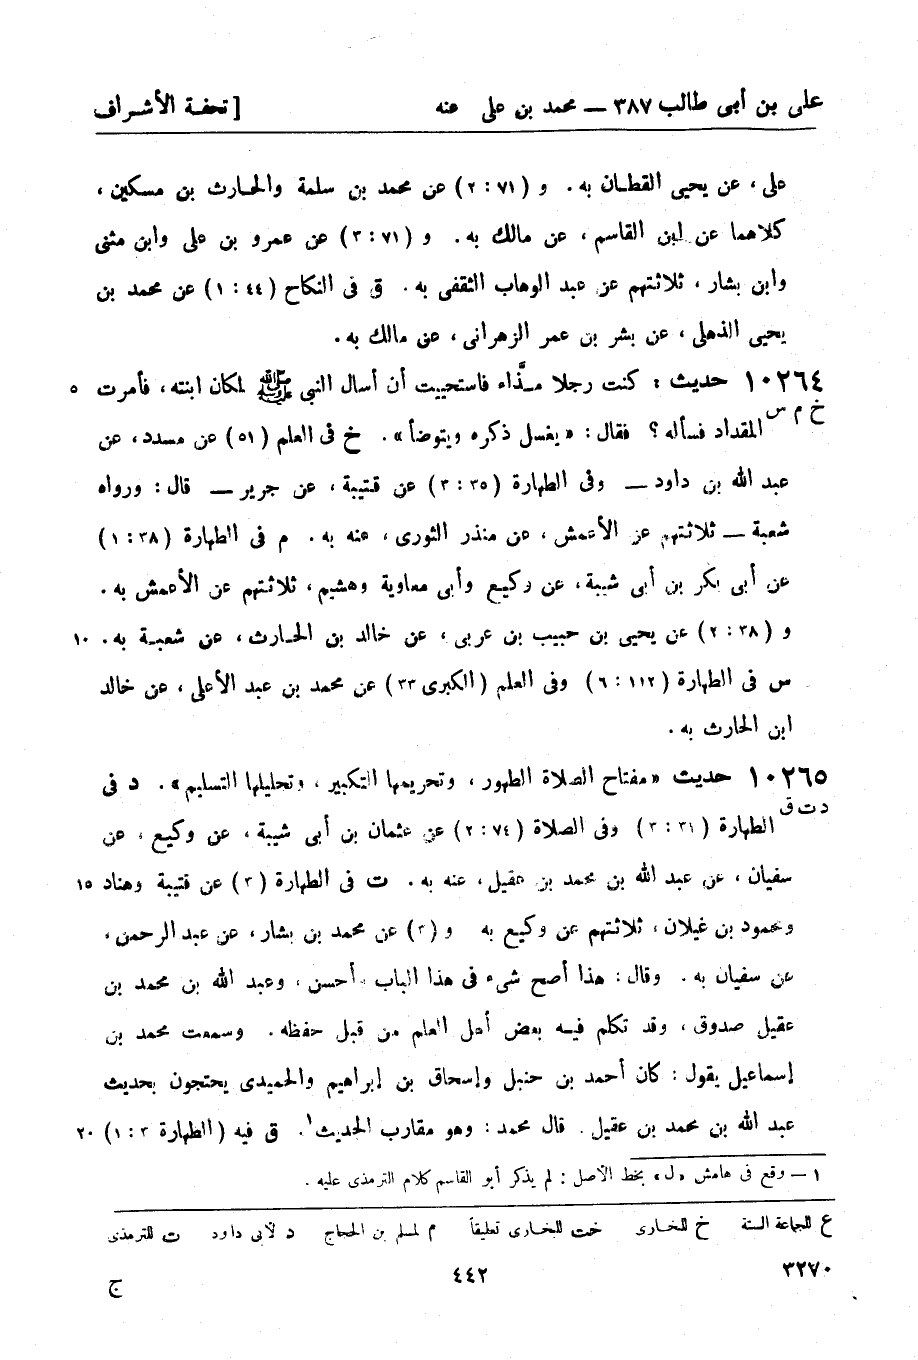 على بن أبى طالب ٣٨٧ — محمد بن على عنه [ تحفة الأشراف
على ، عن يحيى القطان به . و ( ٧١ : ٢ ) عن محمد بن سلمة والحارث بن مسكين ،
كلاهما عن ابن القاسم ، عن مالك به . و ( ٧١ : ٣ ) عن عمرو بن على وابن مثنى
وابن بشار ، ثلاثتهم عن عبد الوهاب الثقفى به . ق فى النكاح ( ٤٤ : ١ ) عن محمد بن
يحيى الذهلى ، عن بشر بن عمر الزهرانى ، عن مالك به .
١٠٢٦٤ حديث : كنت رجلا مذَّاء فاستحييت أن أسال النبى ﷺ لمكان ابنته ، فأمرت ٥
خ م س المقداد فسأله ؟ فقال : « يغسل ذكره ويتوضأ » . خ فى العلم ( ٥١ ) عن مسدد ، عن
عبد الله بن داود — وفى الطهارة ( ٣٥ : ٣ ) عن قتيبة ، عن جرير — قال : ورواه
شعبة — ثلاثتهم عن الأعمش ، عن منذر الثورى ، عنه به . م فى الطهارة ( ٣٨ : ١ )
عن أبى بكر بن أبى شيبة ، عن وكيع وأبى معاوية وهشيم ، ثلاثتهم عن الأعمش به .
و ( ٣٨ : ٢ ) عن يحيى بن حبيب بن عربى ، عن خالد بن الحارث ، عن شعبة به . ١٠
س فى الطهارة ( ١١٢ : ٦ ) وفى العلم ( الكبرى ٣٣ ) عن محمد بن عبد الأعلى ، عن خالد
ابن الحارث به .
١٠٢٦٥ حديث « مفتاح الصلاة الطهور ، وتحريمها التكبير ، وتحليلها التسليم » . د فى
د ت ق الطهارة ( ٣١ : ٣ ) وفى الصلاة ( ٧٤ : ٢ ) عن عثمان بن أبى شيبة ، عن وكيع ، عن
سفيان ، عن عبد الله بن محمد بن عقيل ، عنه به . ت فى الطهارة ( ٣ ) عن قتيبة وهناد ١٥
ومحمود بن غيلان ، ثلاثتهم عن وكيع به و ( ٣ ) عن محمد بن بشار ، عن عبد الرحمن ،
عن سفيان به . وقال : هذا أصح شىء فى هذا الباب وأحسن ، وعبد الله بن محمد بن
عقيل صدوق ، وقد تكلم فيه بعض أهل العلم من قبل حفظه . وسمعت محمد بن
إسماعيل يقول : كان أحمد بن حنبل وإسحاق بن إبراهيم والحميدى يحتجون بحديث
عبد الله بن محمد بن عقيل . قال محمد : وهو مقارب الحديث ١ . ق فيه ( الطهارة ٣ : ١ ) ٢٠
١ — وقع فى هامش « ل » بخط الأصل : لم يذكر أبو القاسم كلام الترمذى عليه .
ع للجماعة الستة خ للخارى خت للخارى تعليقاً م لمسلم بن الحجاج د لأبى داود ت للترمذى
٣٢٧٠ ٤٤٢ ج